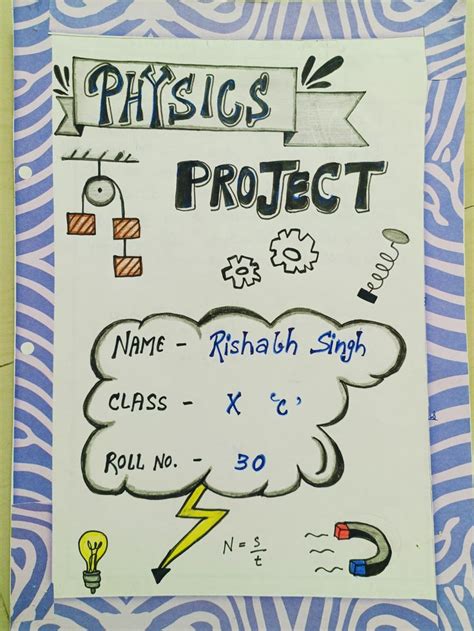 PHYSICS
PROJECT
NAME - Rishabh Singh
CLASS - X 'C'
ROLL NO. - 30
N = s/t